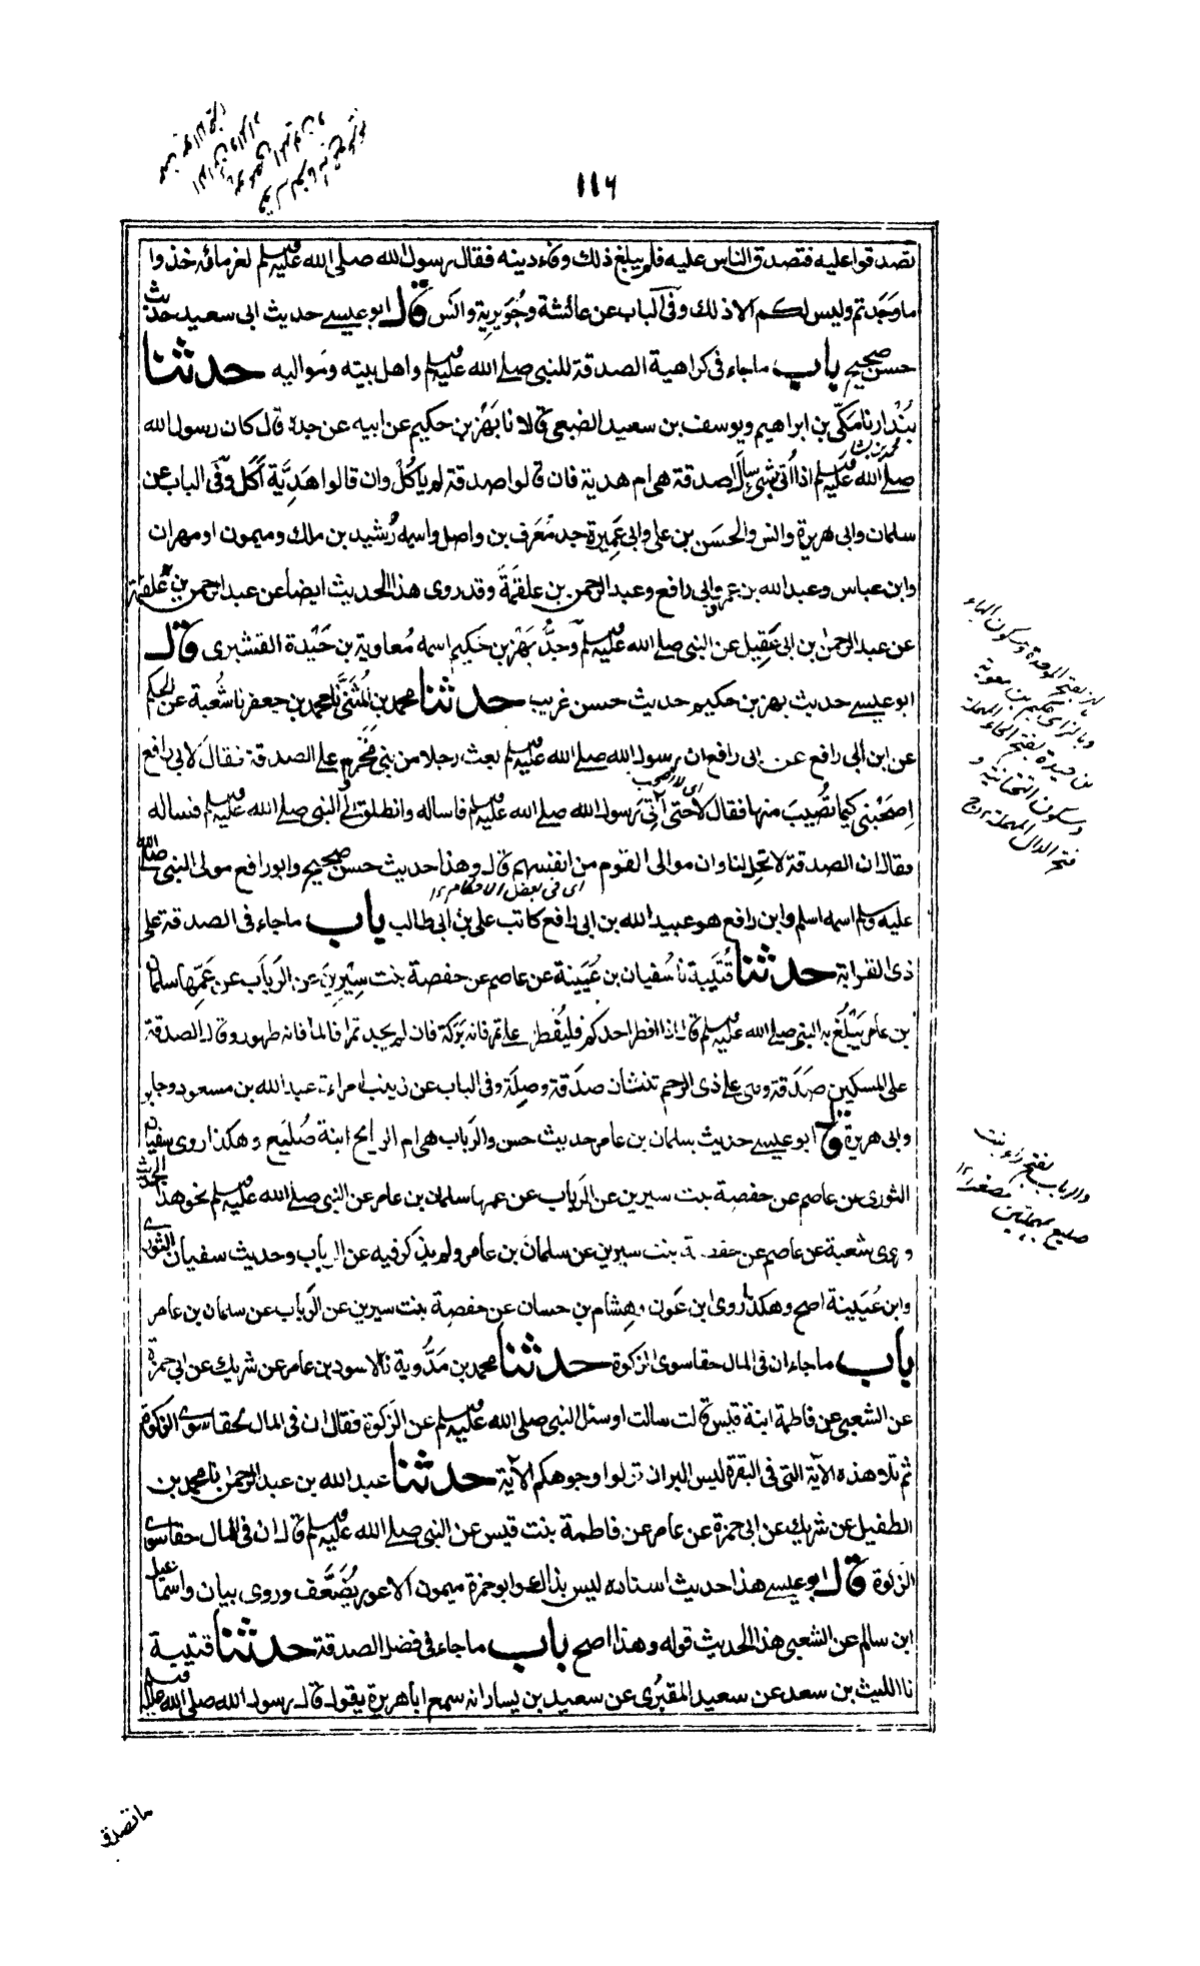 ١١٦
تصدقوا عليه فتصدق الناس عليه فلم يبلغ ذلك وفاء دينه فقال رسول الله صلى الله عليه وسلم لغرمائه خذوا
ما وَجَدتم وليس لكم الا ذلك وفى الباب عن عائشة وجُوَيرية وانس قال ابو عيسے حديث ابى سعيد حديث
حسن صحيح باب ما جاء فى كراهية الصدقة للنبى صلے الله عليه وسلم واهل بيته ومَواليه حدثنا
بُنْدار نا مَكّى بن ابراهيم ويوسف بن سعيد الضبعى قالا نا بَهْز بن حكيم عن ابيه عن جده قال كان رسول الله
محمد بن بشار
صلے الله عليه وسلم اذا اُتى بشئ سال اصدقة هى ام هدية فان قالوا صدقة لم ياكُلْ وان قالوا هَدِيَّة اَكَلَ وفى الباب عن
سلمان وابى هريرة وانس والحسَن بن على وابى عَمِيرة جد مُعَرف بن واصل واسمه رُشيد بن ملك وميمون او مهران
وابن عباس وعبد الله بن عمرو وابى رافع وعبد الرحمن بن علقَمَةَ وقد روى هذا الحديث ايضا عن عبد الرحمن بن علقمة
عن عبد الرحمٰن بن ابى عَقِيل عن النبى صلے الله عليه وسلم وَجدُّ بَهْز بن حَكيم اسمه مُعاوية بن حَيْدة القشيرى قال
ابو عيسے حديث بهز بن حكيم حديث حسن غريب حدثنا محمد بن المُثَنَّى نا محمد بن جعفر نا شُعبة عن الحكم
عن ابن ابى رافع عن ابى رافع ان رسول الله صلے الله عليه وسلم بعث رجلا من بنى مَخْزوم علے الصدقة فقال لابى رافع
اِصحَبْنى كيما تُصِيبَ منها فقال لا حتى آتِىَ رسول الله صلے الله عليه وسلم فاساله وانطلق الى النبى صلے الله عليه وسلم فساله
فقال ان الصدقة لا تحل لنا وان موالى القوم من انفسهم قال وهذا حديث حسن صحيح وابو رافع مولى النبى صلى الله
اى فى بعض الاحكام ١٢
عليه وسلم اسمه اسلم وابن رافع هو عبيد الله بن ابى رافع كاتب على بن ابى طالب باب ما جاء فى الصدقة على
ذى القرابة حدثنا قُتَيبة نا سُفيان بن عُيَينة عن عاصم عن حفصة بنت سِيْرِيْن عن الرَباب عن عَمِّها سلمان
بن عامر يَبْلُغُ به النبى صلے الله عليه وسلم قال اذا افطر احدكم فليُفْطِر على تمر فانه بَرَكة فان لم يجد تمرا فالماء فانه طهور وقال الصدقة
على المسكين صَدَقة وهى علے ذى الرحم ثنتان صدَقة وصِلَة وفى الباب عن زينب امراءة عبد الله بن مسعود وجابر
وابى هريرة قال ابو عيسے حديث سلمان بن عامر حديث حسن والرَباب هى ام الرايح ابنة صُلَيع وهكذا روى سفيان
الثورى عن عاصم عن حفصة بنت سيرين عن الرَباب عن عمها سلمان بن عامر عن النبى صلے الله عليه وسلم نحو هذا الحديث
وروى شعبة عن عاصم عن حفصة بنت سيرين عن سلمان بن عامر ولم يذكر فيه عن الرباب وحديث سفيان الثورى
وابن عُيَينة اصح وهكذا روى ابن عَون وهِشام بن حسان عن حفصة بنت سيرين عن الرَباب عن سلمان بن عامر
باب ما جاء ان فى المال حقا سوى الزكوة حدثنا محمد بن مَدُّوية نا الاسود بن عامر عن شريك عن ابى حمزة
عن الشعبى عن فاطمة ابنة قيس قالت سالت او سئل النبى صلى الله عليه وسلم عن الزكوة فقال ان فى المال لحقا سوى الزكوة
ثم تلا هذه الآية التى فى البقرة ليس البر ان تولوا وجوهكم الآية حدثنا عبد الله بن عبد الرحمٰن نا محمد بن
الطفيل عن شريك عن ابى حمزة عن عامر عن فاطمة بنت قيس عن النبى صلے الله عليه وسلم قال ان فى المال حقا سوى
الزكوة قال ابو عيسے هذا حديث اسناده ليس بذاك وابو حمزة ميمون الاعور يُضَعَّف وروى بيان واسماعيل
ابن سالم عن الشعبى هذا الحديث قوله وهذا اصح باب ما جاء فى فضل الصدقة حدثنا قتيبة
نا الليث بن سعد عن سعيد المقبُرى عن سعيد بن يسار انه سمع اباهريرة يقول قال رسول الله صلى الله عليه وسلم
بهز بفتح الموحدة وسكون الهاء
وبالزاى حكيم بن معوية
بن حيدة بفتح الحاء المهملة
وسكون التحتانية و
فتح الدال المهملة
والرباب بفتح راء بنت
صليع بمهملتين مصغرا ١٢
ما تصدق